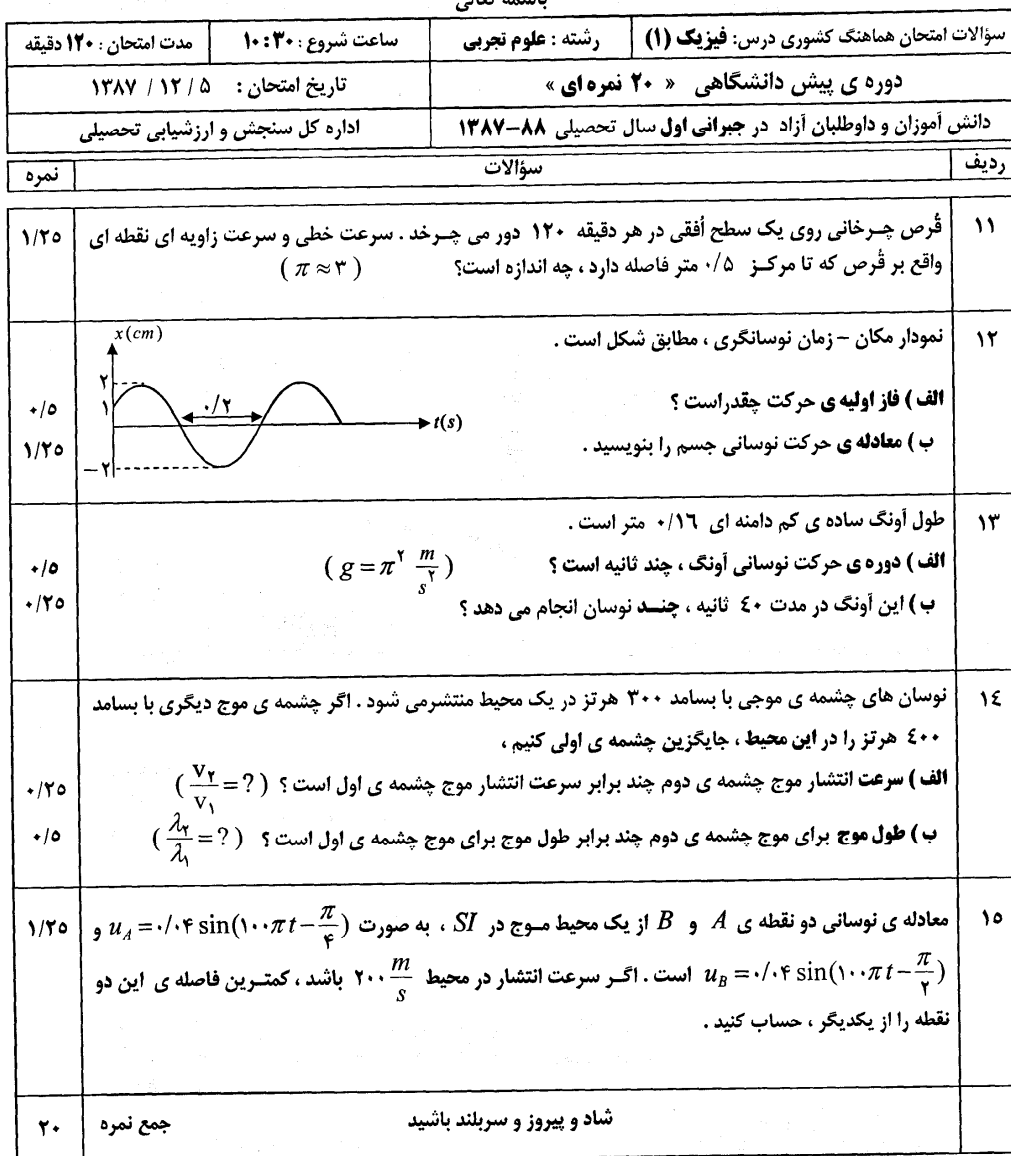 باسمه تعالی
سؤالات امتحان هماهنگ کشوری درس: فیزیک (۱) رشته : علوم تجربی ساعت شروع : ۱۰:۳۰ مدت امتحان : ۱۲۰ دقیقه
دوره ی پیش دانشگاهی « ۲۰ نمره ای » تاریخ امتحان : ۱۳۸۷ / ۱۲ / ۵
دانش آموزان و داوطلبان آزاد در جبرانی اول سال تحصیلی ۸۸–۱۳۸۷ اداره کل سنجش و ارزشیابی تحصیلی
ردیف سؤالات نمره
۱۱ قُرص چـرخانی روی یک سطح اُفقی در هر دقیقه ۱۲۰ دور می چـرخد . سرعت خطی و سرعت زاویه ای نقطه ای ۱/۲۵
واقع بر قُرص که تا مرکـز ۰/۵ متر فاصله دارد ، چه اندازه است؟ ( π ≈ ۳ )
۱۲ نمودار مکان – زمان نوسانگری ، مطابق شکل است .
x(cm)
۲
۱
۰/۲
t(s)
–۲
الف ) فاز اولیه ی حرکت چقدراست ؟ ۰/۵
ب ) معادله ی حرکت نوسانی جسم را بنویسید . ۱/۲۵
۱۳ طول آونگ ساده ی کم دامنه ای ۰/۱۶ متر است .
الف ) دوره ی حرکت نوسانی آونگ ، چند ثانیه است ؟ ( g = π^۲ m/s^۲ ) ۰/۵
ب ) این آونگ در مدت ۴۰ ثانیه ، چنـد نوسان انجام می دهد ؟ ۰/۲۵
۱۴ نوسان های چشمه ی موجی با بسامد ۳۰۰ هرتز در یک محیط منتشرمی شود . اگر چشمه ی موج دیگری با بسامد
۴۰۰ هرتز را در این محیط ، جایگزین چشمه ی اولی کنیم ،
الف ) سرعت انتشار موج چشمه ی دوم چند برابر سرعت انتشار موج چشمه ی اول است ؟ ( v۲/v۱ = ? ) ۰/۲۵
ب ) طول موج برای موج چشمه ی دوم چند برابر طول موج برای موج چشمه ی اول است ؟ ( λ۲/λ۱ = ? ) ۰/۵
۱۵ معادله ی نوسانی دو نقطه ی A و B از یک محیط مـوج در SI ، به صورت u_A = ۰/۰۴ sin(۱۰۰π t – π/۴) و ۱/۲۵
u_B = ۰/۰۴ sin(۱۰۰π t – π/۲) است . اگـر سرعت انتشار در محیط ۲۰۰ m/s باشد ، کمتـرین فاصله ی این دو
نقطه را از یکدیگر ، حساب کنید .
شاد و پیروز و سربلند باشید جمع نمره ۲۰